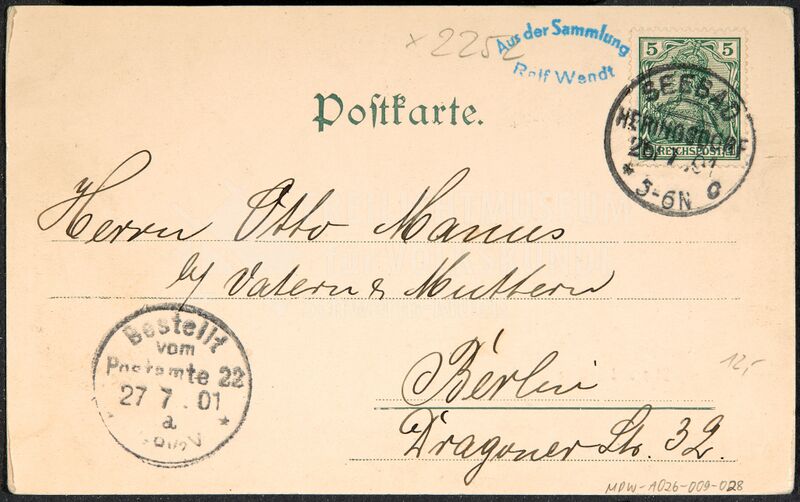 x 2252
Aus der Sammlung
Rolf Wendt
5 5
REICHSPOST
SEEBAD
HERINGSDORF
26 7 .01
* 5-6N a
Postkarte.
Herrn Otto Manus
b/ Vatern & Muttern
Berlin
Dragoner Str. 32.
Bestellt
vom
Postamte 22
27 7 .01
a
12,-
MDW-A026-009-028